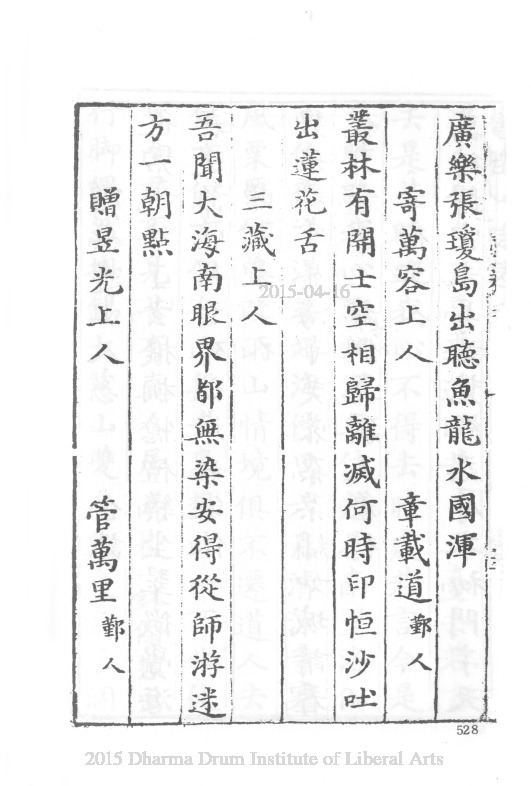 廣樂張瓊島出聽魚龍水國渾
寄萬容上人 章載道 鄞人
叢林有開士空相歸離滅何時印恒沙吐
出蓮花舌
三藏上人
吾聞大海南眼界都無染安得從師游迷
方一朝點
贈昱光上人 管萬里 鄞人
2015-04-16
528
2015 Dharma Drum Institute of Liberal Arts